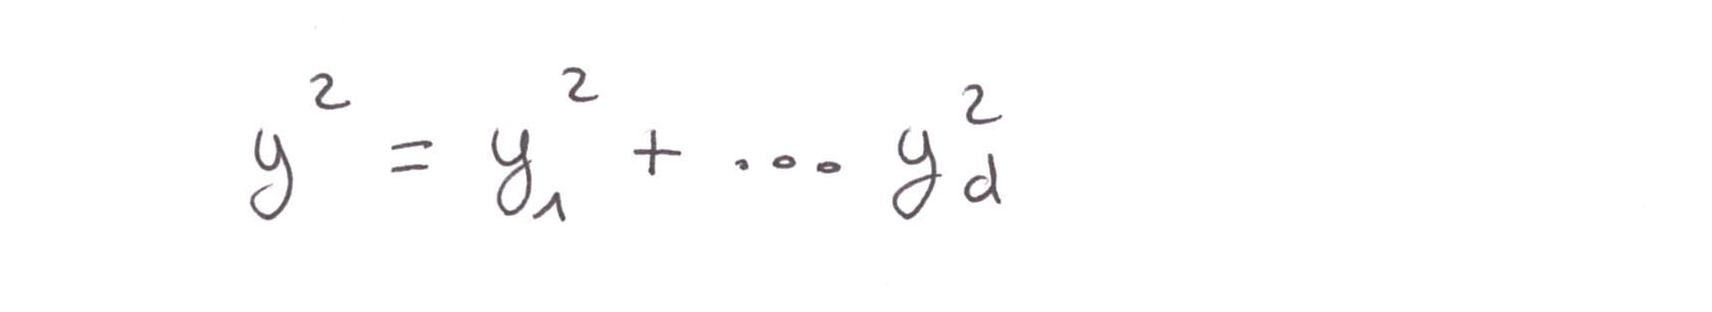 y² = y₁² + ... y_d²